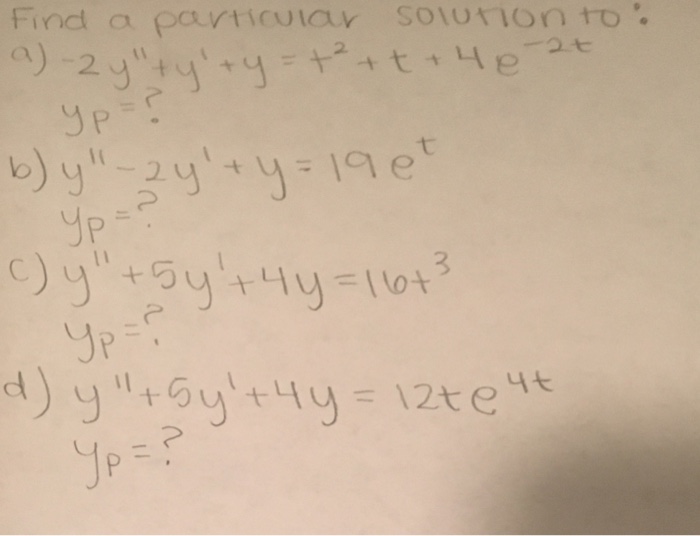 Find a particular solution to:
a) -2y"+y'+y=t²+t+4e⁻²ᵗ
yp=?
b) y"-2y'+y=19eᵗ
yp=?
c) y"+5y'+4y=16t³
yp=?
d) y"+5y'+4y=12te⁴ᵗ
yp=?